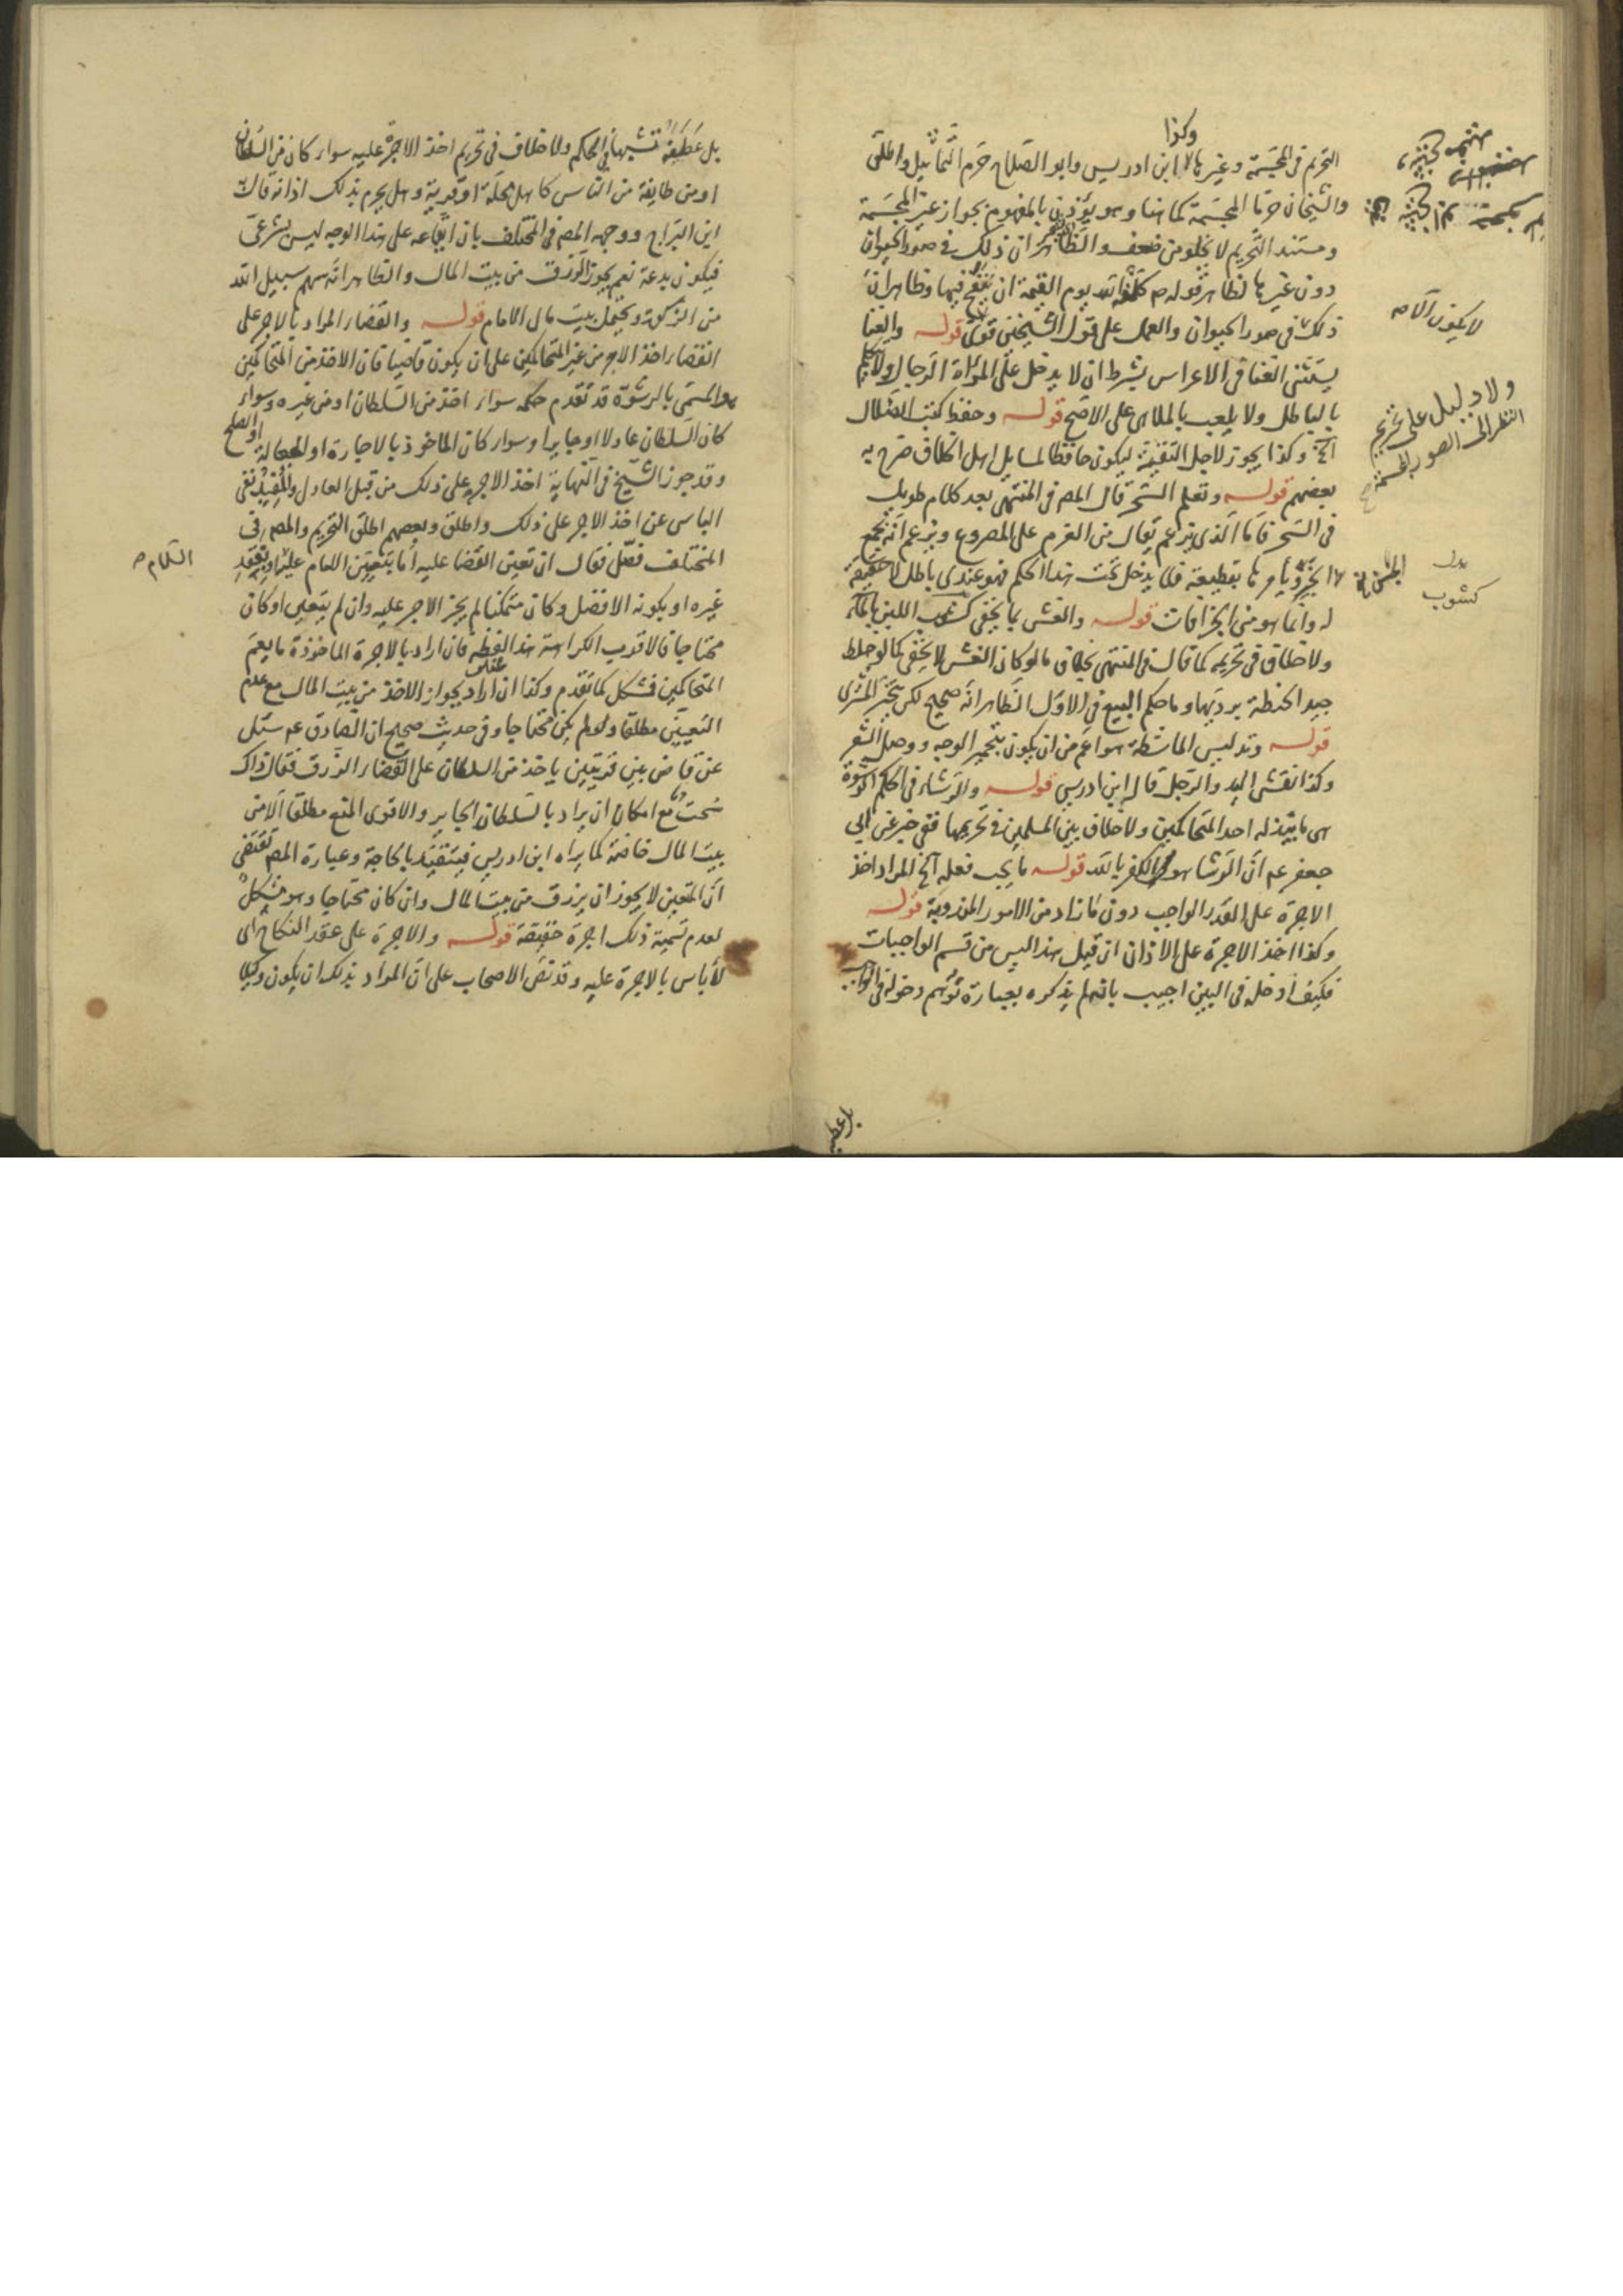 وكذا
التحريم فى المجسمة وغيرها ابن ادريس وابو الصلاح حرم التماثيل واطلق
والشيخان حرما المجسمة كما هنا وهو يؤذن بالمفهوم بجواز غير المجسمة
ومستند التحريم لا يخلو من ضعف والظاهر ان ذلك فى صور الحيوان
دون غيرها لظاهر قوله ص كلفه الله يوم القيمة ان ينفخ فيها وظاهر ان
ذلك فى صور الحيوان والعمل على قول الشيخين قوى قوله والغنا
يستثنى الغنا فى الاعراس بشرط ان لا يدخل على المرأة الرجال ولا يتكلم
بالباطل ولا يلعب بالملاهى على الاصح قوله وحفظ كتب الضلال
آه وكذا يجوز لاجل التقية ليكون حافظا لمسايل اهل الخلاف صرح به
بعضهم قوله وتعلم السحر قال المص فى المنتهى بعد كلام طويل
فى السحر فاما الذى يزعم يقال من العزم على المصروع ويزعم انه يجمع
الجن ويأمرها بتطيعه فلا يدخل تحت هذا الحكم فهو عندى باطل لا حقيقة
له وانما هو من الخرافات قوله والغش بما يخفى كشوب اللبن بالماء
ولا خلاف فى تحريمه كما قال فى المنتهى بخلاف ما لو كان الغش لا يخفى كما لو خلط
جيد الحنطة برديها وما حكم البيع فى الاول الظاهر انه صحيح لكن يتخير المشترى
قوله وتدليس الماشطة هو اعم من ان يكون بتحمير الوجه ووصل الشعر
وكذا نقش اليد والرجل قاله ابن ادريس قوله والرشاء فى الحكم الرشوة
هى ما يبذله احد المتحاكمين ولا خلاف بين المسلمين فى تحريمها ففى خبر عن ابى
جعفر عم ان الرشا هو الكفر بالله قوله ما يجب فعله آلخ المراد اخذ
الاجرة على القدر الواجب دون ما زاد من الامور المندوبة قوله
وكذا اخذ الاجرة على الاذان ان قيل هذا ليس من قسم الواجبات
فكيف ادخله فى البين اجيب بانه لم يذكره بعبارة توهم دخوله فى الواجب
لا يكون الا ص
ولا دليل على تحريم
النظر الى الصور المجسمة
بدل
كشوب
بل عطفه
بل عطفه تشبيها فى الحكم ولا خلاف فى تحريم اخذ الاجرة عليه سواء كان من السلطان
او من طايفة من الناس كاهل محلة او قرية وهل يحرم بذلك اذانه قال
ابن البراج ووجهه المص فى المختلف بان ايقاعه على هذا الوجه ليس بشرعى
فيكون بدعة نعم يجوز الرزق من بيت المال والظاهر انه سهم سبيل الله
من الزكوة ويحتمل بيت مال الامام قوله والقضاء المراد بالاجر على
القضاء اخذ الاجر من غير المتحاكمين على ان يكون قاضيا فان الاخذ من المتحاكمين
هو المسمى بالرشوة قد تقدم حكمه سواء اخذ من السلطان او من غيره وسواء
كان السلطان عادلا او جايرا وسواء كان الماخوذ بالاجارة او الجعالة او الصلح
وقد جوز الشيخ فى النهاية اخذ الاجر على ذلك من قبل العادل والمفيد نفى
الباس عن اخذ الاجر على ذلك واطلق وبعضهم اطلق التحريم والمص فى
المختلف فصل فقال ان تعين القضا عليه اما بتعيين الامام عليه او بفقد
غيره او بكونه الافضل وكان متمكنا لم يجز الاجر عليه وان لم يتعين او كان
محتاجا فالاقرب الكراهة هذا لفظه فان اراد بالاجرة الماخوذة ما يعم
المتحاكمين فمشكل كما تقدم وكذا ان اراد بجواز الاخذ من بيت المال مع عدم
التعيين مطلقا ولو لم يكن محتاجا وفى حديث صحيح ان الصادق عم سئل
عن قاض بين قريتين ياخذ من السلطان على القضاء الرزق فقال ذلك
سحت مع امكان ان يراد بالسلطان الجاير والاقوى المنع مطلقا الا من
بيت المال خاصة كما يراه ابن ادريس فيتقيد بالحاجة وعبارة المص تقتضى
ان المتعين لا يجوز ان يرزق من بيت المال وان كان محتاجا وهو مشكل
لعدم تسمية ذلك اجرة حقيقة قوله والاجرة على عقد النكاح اى
لا باس بالاجرة عليه وقد نص الاصحاب على ان المراد بذلك ان يكون وكيلا
السلام ص